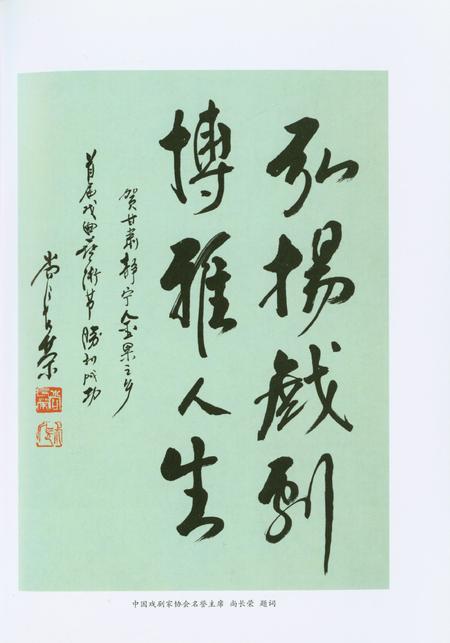 弘揚戏剧
博雅人生
贺甘肃静宁金果之乡
首届戏曲艺术节胜利成功
尚长荣
中国戏剧家协会名誉主席 尚长荣 题词